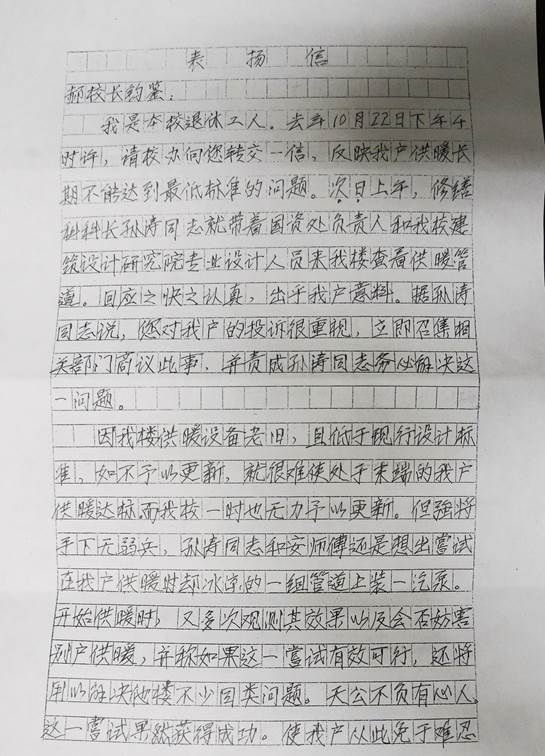 表扬信
郝校长钧鉴:
我是本校退休工人。去年10月22日下午4
时许,请校办向您转交一信,反映我户供暖长
期不能达到最低标准的问题。次日上午,修缮
科科长孙涛同志就带着国资处负责人和我校建
筑设计研究院专业设计人员来我楼查看供暖管
道。回应之快之认真,出乎我户意料。据孙涛
同志说,您对我户的投诉很重视,立即召集相
关部门商议此事,并责成孙涛同志务必解决这
一问题。
因我楼供暖设备老旧,且低于现行设计标
准,如不予以更新,就很难使处于末端的我户
供暖达标而我校一时也无力予以更新。但强将
手下无弱兵,孙涛同志和安师傅还是想出尝试
在我户供暖时却冰凉的一组管道上装一汽泵。
开始供暖时,又多次观测其效果以及会否妨害
别户供暖,并称如果这一尝试有效可行,还将
用以解决他楼不少同类问题。天公不负有心人
这一尝试果然获得成功。使我户从此免于难忍